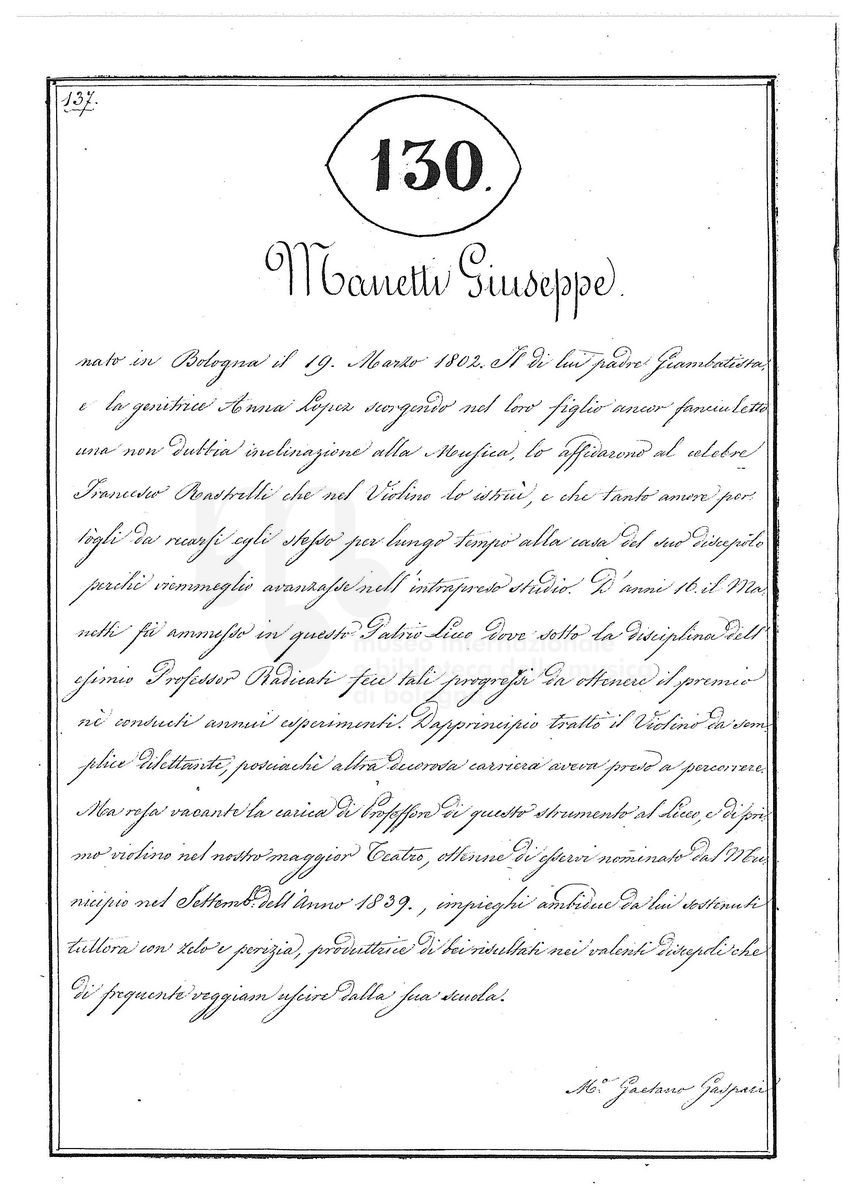 137.
130.
Manetti Giuseppe.
nato in Bologna il 19. Marzo 1802. Il di lui padre Giambatista,
e la genitrice Anna Lopez scorgendo nel loro figlio ancor fanciuletto
una non dubbia inclinazione alla Musica, lo affidarono al celebre
Francesco Rastrelli che nel Violino lo istruì, e che tanto amore por
togli da recarsi egli stesso per lungo tempo alla casa del suo discepolo
perchè viemmeglio avanzasse nell'intrapreso studio. D'anni 16. il Ma,
netti fù ammesso in questo Patrio Liceo dove sotto la disciplina dell'
esimio Professor Radicati fece tali progressi da ottenere il premio
nè consueti annui esperimenti. Dapprincipio trattò il Violino da sem
plice dilettante, posciachè altra decorosa carriera aveva preso a percorrere.
Ma resa vacante la carica di Professore di questo strumento al Liceo, e di pri
mo violino nel nostro maggior Teatro, ottenne di esservi nominato dal Mu,
nicipio nel Settemb. dell'Anno 1839., impieghi ambidue da lui sostenuti
tuttora con zelo e perizia, produttrice di bei risultati nei valenti discepoli che
di frequente veggiam uscire dalla sua scuola.
M.o Gaetano Gaspari
museo internazionale
e biblioteca della musica
di bologna